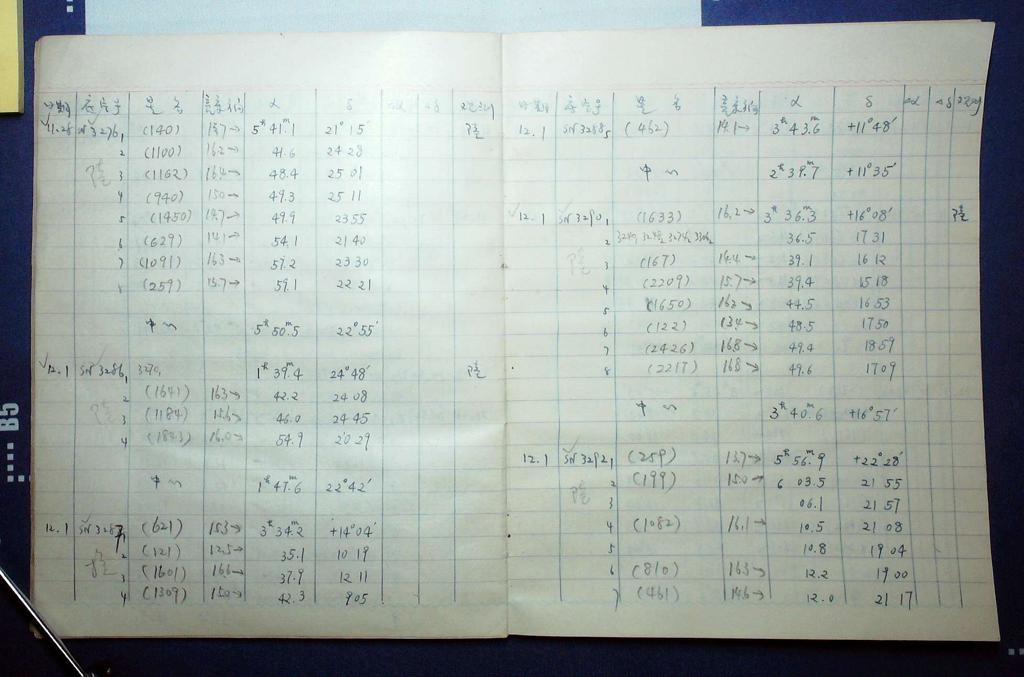 α δ
11.28 SN 3276₁ (140) 5ʰ 41ᵐ.1 21° 15′
2 (1100) 16.2→ 41.6 24 28
3 (1162) 16.4→ 48.4 25 01
4 (940) 15.0→ 49.3 25 11
5 (1450) 49.9 23 55
6 (629) 14.1→ 54.1 21 40
7 (1091) 16.3→ 57.2 23 30
(259) 15.7→ 59.1 22 21
中心 5ʰ 50ᵐ.5 22° 55′
√12.1 SN 3286₁ 1ʰ 39ᵐ.4 24° 48′
2 (1641) 16.3→ 42.2 24 08
3 (1184) 46.0 24 45
4 16.0→ 54.9 20 29
中心 1ʰ 47ᵐ.6 22° 42′
12.1 SN 3287₁ (621) 15.3→ 3ʰ 34ᵐ.2 +14° 04′
2 (121) 12.5→ 35.1 10 19
3 (1601) 16.6→ 37.9 12 11
4 (1309) 15.0→ 42.3 9 05
α δ Δα Δδ
12.1 SN 3288₅ (462) 14.1→ 3ʰ 43ᵐ.6 +11° 48′
中心 2ʰ 39ᵐ.7 +11° 35′
√12.1 SN 3290₁ (1633) 16.2→ 3ʰ 36ᵐ.3 +16° 08′
2 36.5 17 31
3 (167) 14.4→ 39.1 16 12
4 (2209) 15.7→ 39.4 15 18
5 (1650) 44.5 16 53
6 (122) 13.4→ 48.5 17 50
7 (2426) 16.8→ 49.4 18 59
8 (2217) 16.8→ 49.6 17 09
中心 3ʰ 40ᵐ.6 +16° 57′
12.1 SN 3292₁ (259) 15.7→ 5ʰ 56ᵐ.9 +22° 28′
2 (199) 15.0→ 6 03.5 21 55
3 06.1 21 57
4 (1082) 16.1→ 10.5 21 08
5 10.8 19 04
6 (810) 16.3→ 12.2 19 00
7 (461) 14.6→ 12.0 21 17
B5